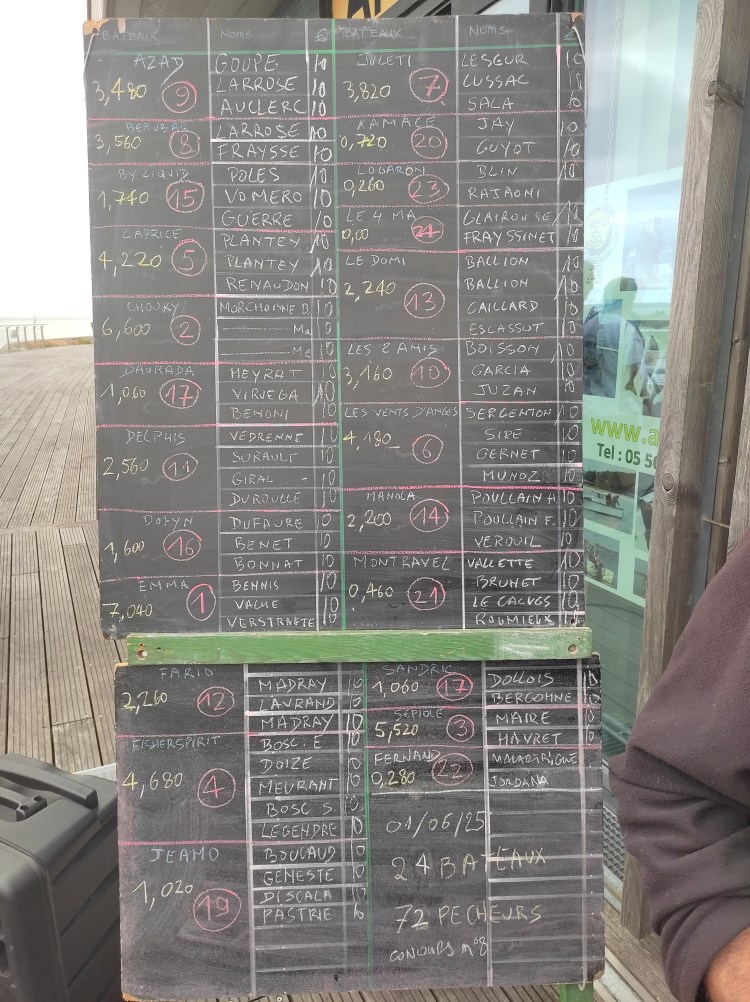 BATEAUX NOMS € BATEAUX NOMS €
AZAD
3,480 9
GOUPE 10
LARROSE 10
AUCLERC 10
3,560 8
LARROSE 10
FRAYSSE 10
BY LIQUID
1,740 15
POLES 10
VOMERO 10
GUERRE 10
CAPRICE
4,220 5
PLANTEY 10
PLANTEY 10
RENAUDON 10
CHOUKY
6,600 2
MORCHOISNE B 10
Ma 10
Me 10
DAURADA
1,060 17
MEYRAT 10
VIRUEGA 10
BENONI 10
DELPHIS
2,560 11
VEDRENNE 10
SURAULT 10
GIRAL 10
DUROULLE 10
DOFYN
1,600 16
DUFAURE 10
BENET 10
BONNAT 10
EMMA
7,040 1
BENNIS 10
VALUE 10
VERSTRAETE 10
JULETI
3,820 7
LESGUR 10
CUSSAC 10
SALA 10
XAMACE
0,720 20
JAY 10
GUYOT 10
LOGARON
0,260 23
BLIN 10
RAJAONI
LE 4 MA
0,00 24
CLAIROUSE 10
FRAYSSINET 10
LE DOMI
2,240 13
BALLION 10
BALLION 10
GAILLARD 10
ESCASSUT 10
LES 2 AMIS
3,160 10
BOISSON 10
GARCIA 10
JUZAN 10
LES VENTS D'ANGES
4,180 6
SERGENTON 10
SIPE 10
GERNET 10
MUNOZ 10
MANOLA
2,200 14
POULLAIN H 10
POULLAIN F. 10
VEROUIL 10
MONTRAVEL
0,460 21
VALLETTE 10
BRUNET 10
LE CALVES 10
ROUMIEUX 10
www.a
Tel : 05 5
FARIO
2,260 12
MADRAY 10
LAURAND 10
MADRAY 10
FISHERSPIRIT
4,680 4
BOSC. E 10
DOIZE 10
MEURANT 10
BOSC S. 10
LEGENDRE 10
JEAMO
1,020 19
BOUCAUD 10
GENESTE 10
DISCALA 10
PASTRIE 10
SANDRIC
1,060 17
DOLLOIS 10
BERGOHNE 10
SEPIOLE
5,520 3
MAIRE 10
HAVRET 10
FERNAND
0,280 22
JORDANA
01/06/25
24 BATEAUX
72 PECHEURS
CONCOURS n°8